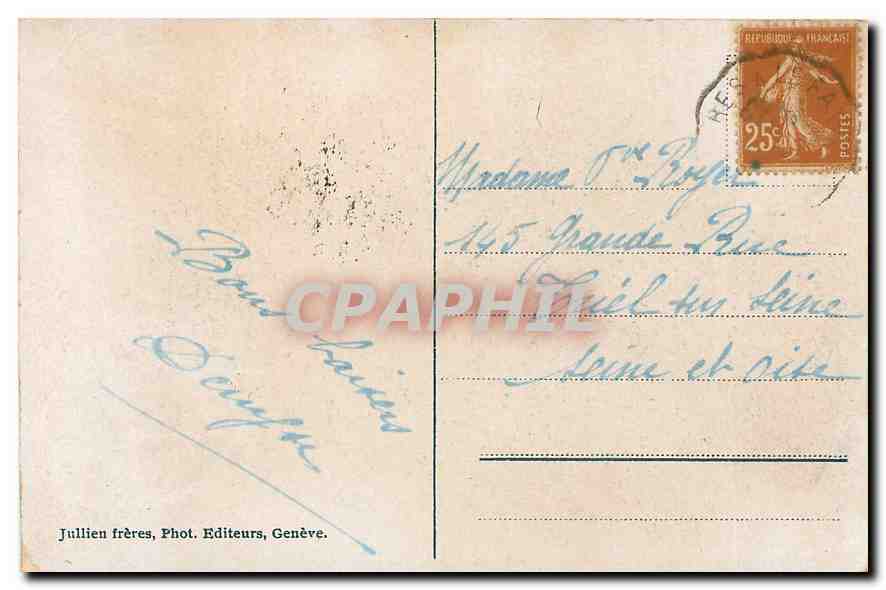 REPUBLIQUE FRANÇAISE
25c
POSTES
Madame Vve Royer
145 Grande Rue
Triel sur Seine
Seine et Oise
Bons baisers
CPAPHIL
Jullien frères, Phot. Editeurs, Genève.